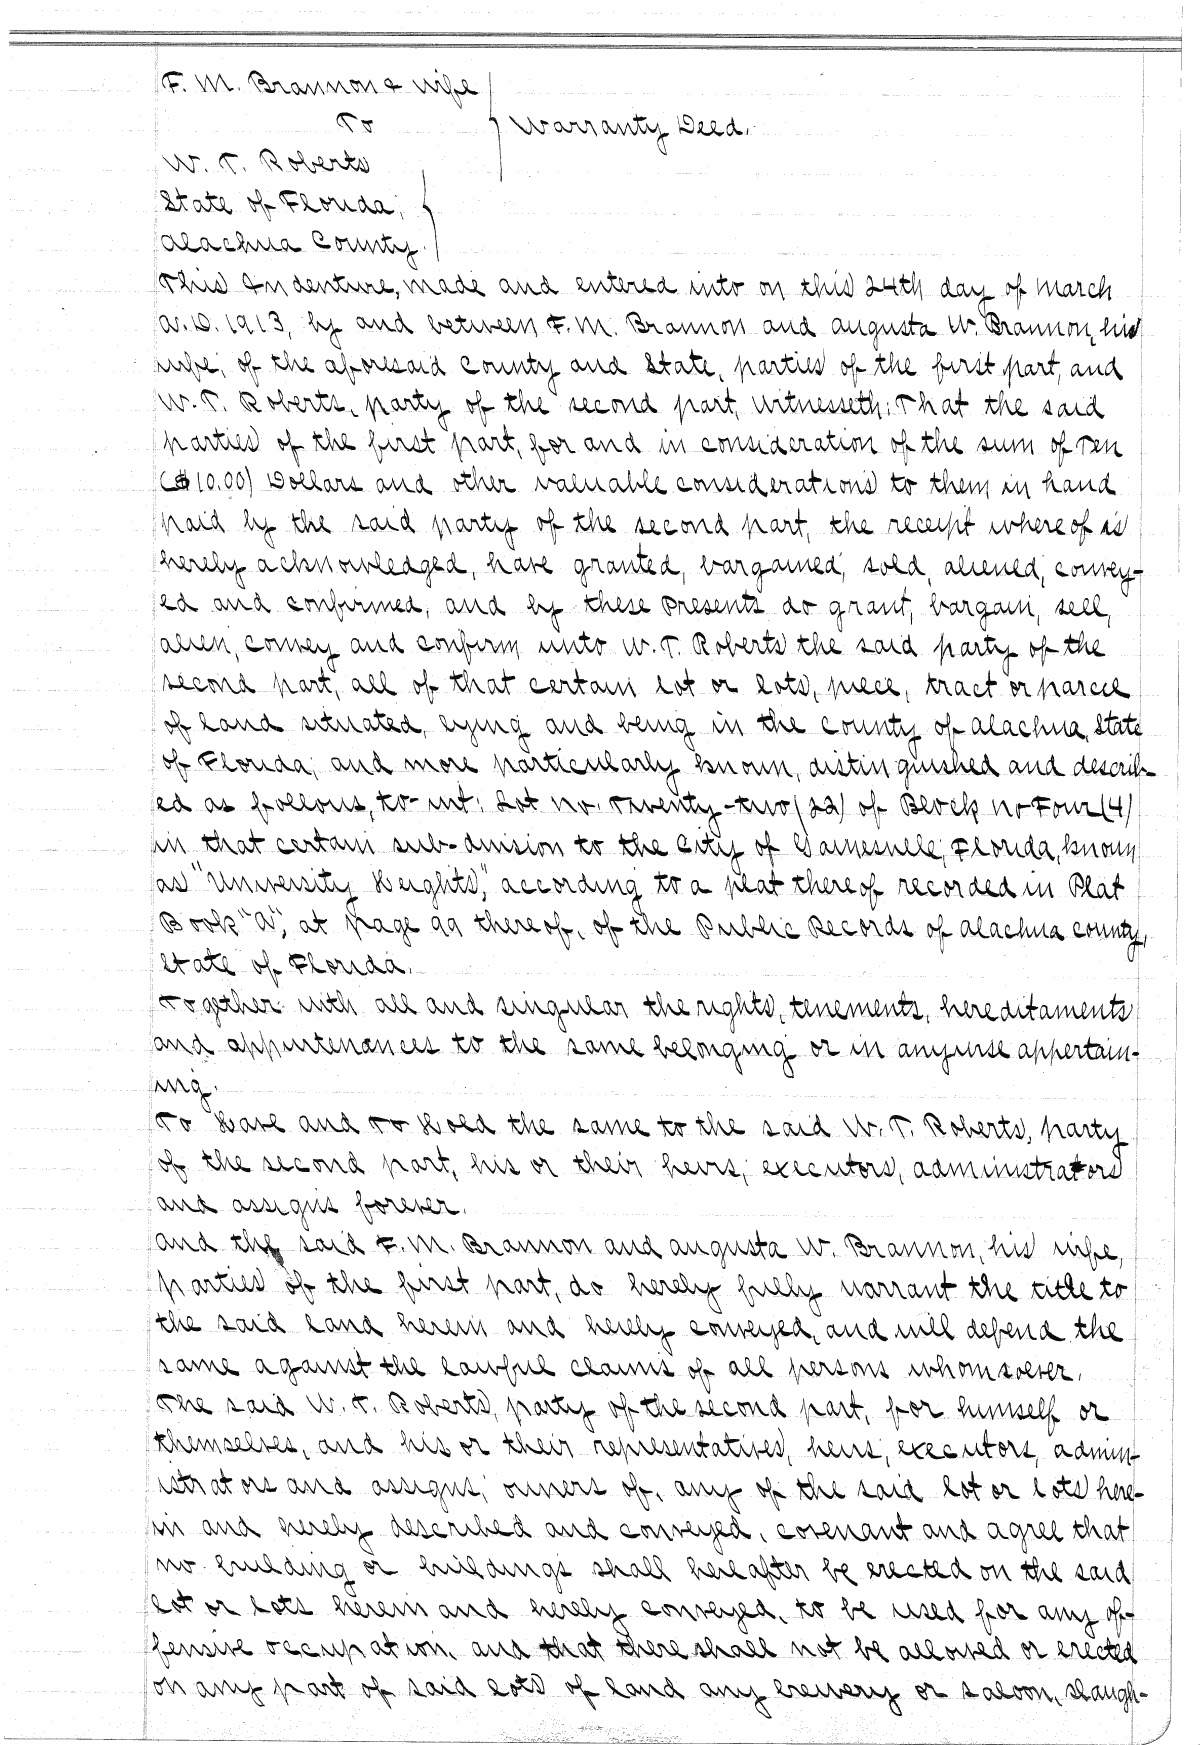 F. M. Brannon & wife
To
Warranty Deed.
W. T. Roberts
State of Florida,
Alachua County.
This Indenture, made and entered into on this 24th day of March
A.D. 1913, by and between F. M. Brannon and Augusta W. Brannon, his
wife, of the aforesaid County and State, parties of the first part, and
W. T. Roberts, party of the second part, Witnesseth: That the said
parties of the first part, for and in consideration of the sum of Ten
($10.00) Dollars and other valuable considerations to them in hand
paid by the said party of the second part, the receipt whereof is
hereby acknowledged, have granted, bargained, sold, aliened, convey-
ed and confirmed, and by these Presents do grant, bargain, sell,
alien, convey and confirm unto W. T. Roberts the said party of the
second part, all of that certain lot or lots, piece, tract or parcel
of land situated, lying and being in the County of Alachua, State
of Florida, and more particularly known, distinguished and describ-
ed as follows, to-wit: Lot No. Twenty-two (22) of Block No Four (4)
in that certain sub-division to the City of Gainesville, Florida, known
as "University Heights," according to a plat thereof recorded in Plat
Book "A", at page 99 thereof, of the Public Records of Alachua County,
State of Florida.
Together with all and singular the rights, tenements, hereditaments
and appurtenances to the same belonging or in anywise appertain-
ing.
To Have and To Hold the same to the said W. T. Roberts, party
of the second part, his or their heirs, executors, administrators
and assigns forever.
And the said F. M. Brannon and Augusta W. Brannon, his wife,
parties of the first part, do hereby fully warrant the title to
the said land herein and hereby conveyed, and will defend the
same against the lawful claims of all persons whomsoever.
The said W. T. Roberts, party of the second part, for himself or
themselves, and his or their representatives, heirs, executors, admin-
istrators and assigns, owners of, any of the said lot or lots here-
in and hereby described and conveyed, covenant and agree that
no building or buildings shall hereafter be erected on the said
lot or lots herein and hereby conveyed, to be used for any of-
fensive occupation, and that there shall not be allowed or erected
on any part of said lots of land any brewery or saloon, slaugh-